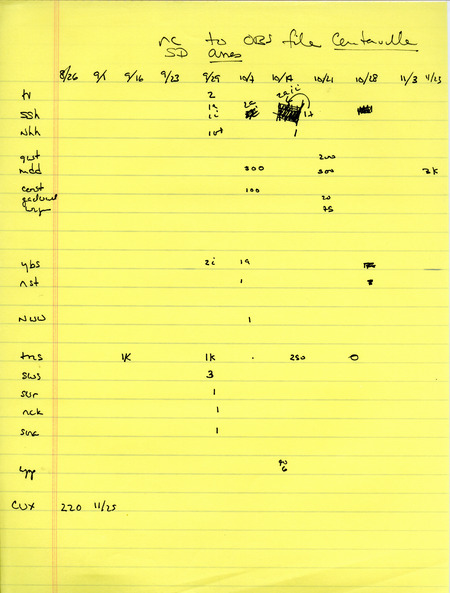 nc to OBS file Centerville
SD Area
8/26 9/1 9/16 9/23 9/29 10/7 10/17 10/21 10/28 11/3 11/25
tv 2
ssh 1a 2a 1+
1i
Nhh 10+ 1
gwt 200
mdd 300 300 2K
const 100
gadwall 20
75
ybs 2i 1a
nst 1
NWW 1
tms 1K 1K . 250 0
sws 3
sur 1
nck 1
snc 1
ypp 6
CUX 220 11/25